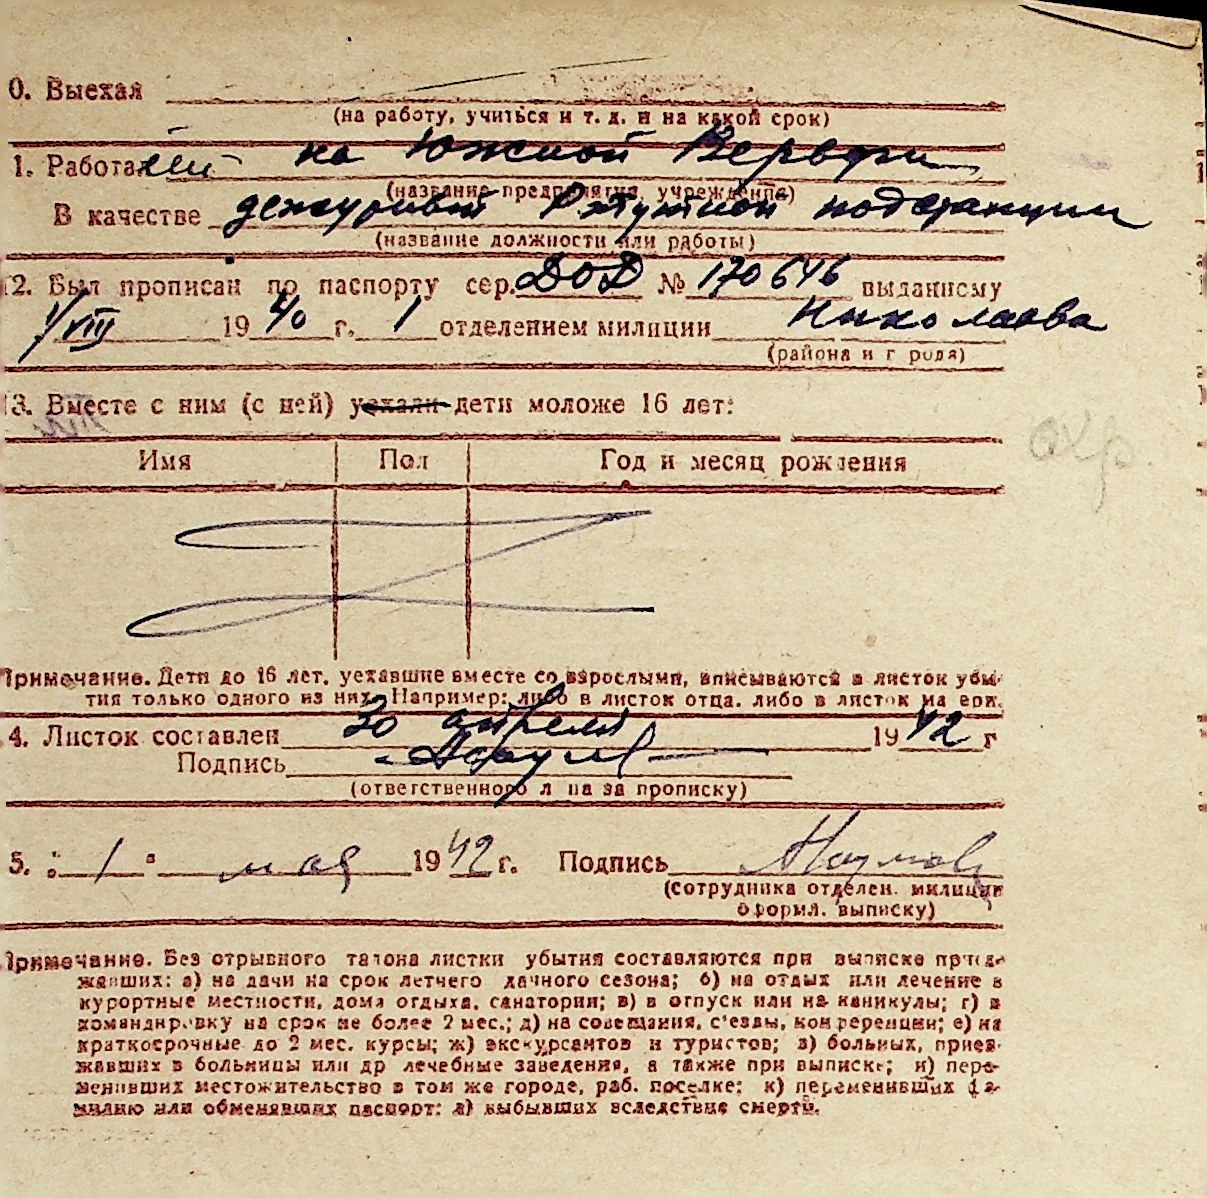 0. Выехал
(на работу, учиться и т. д. и на какой срок)
1. Работал на Южной Верфи
(название предприятия, учреждения)
В качестве дежурный Ртутной подстанции
(название должности или работы)
2. Был прописан по паспорту сер. ДОД № 170646 выданному
1/VIII 1940 г. 1 отделением милиции Николаева
(района и города)
3. Вместе с ним (с ней) уехали дети моложе 16 лет:
охр.
Имя Пол Год и месяц рождения
Примечание. Дети до 16 лет, уехавшие вместе со взрослыми, вписываются в листок убы-
тия только одного из них. Например: либо в листок отца, либо в листок матери.
4. Листок составлен 30 апреля 1942 г
Подпись
(ответственного лица за прописку)
5. "1" мая 1942 г. Подпись
(сотрудника отделен. милиции
оформл. выписку)
Примечание. Без отрывного талона листки убытия составляются при выписке приез-
жавших: а) на дачи на срок летнего дачного сезона; б) на отдых или лечение в
курортные местности, дома отдыха, санатории; в) в отпуск или на каникулы; г) в
командировку на срок не более 2 мес.; д) на совещания, с'езды, конференции; е) на
краткосрочные до 2 мес. курсы; ж) экскурсантов и туристов; з) больных, приез-
жавших в больницы или др лечебные заведения, а также при выписке; и) пере-
менивших местожительство в том же городе, раб. поселке; к) переменивших фа-
милию или обменявших паспорт; л) выбывших вследствие смерти.